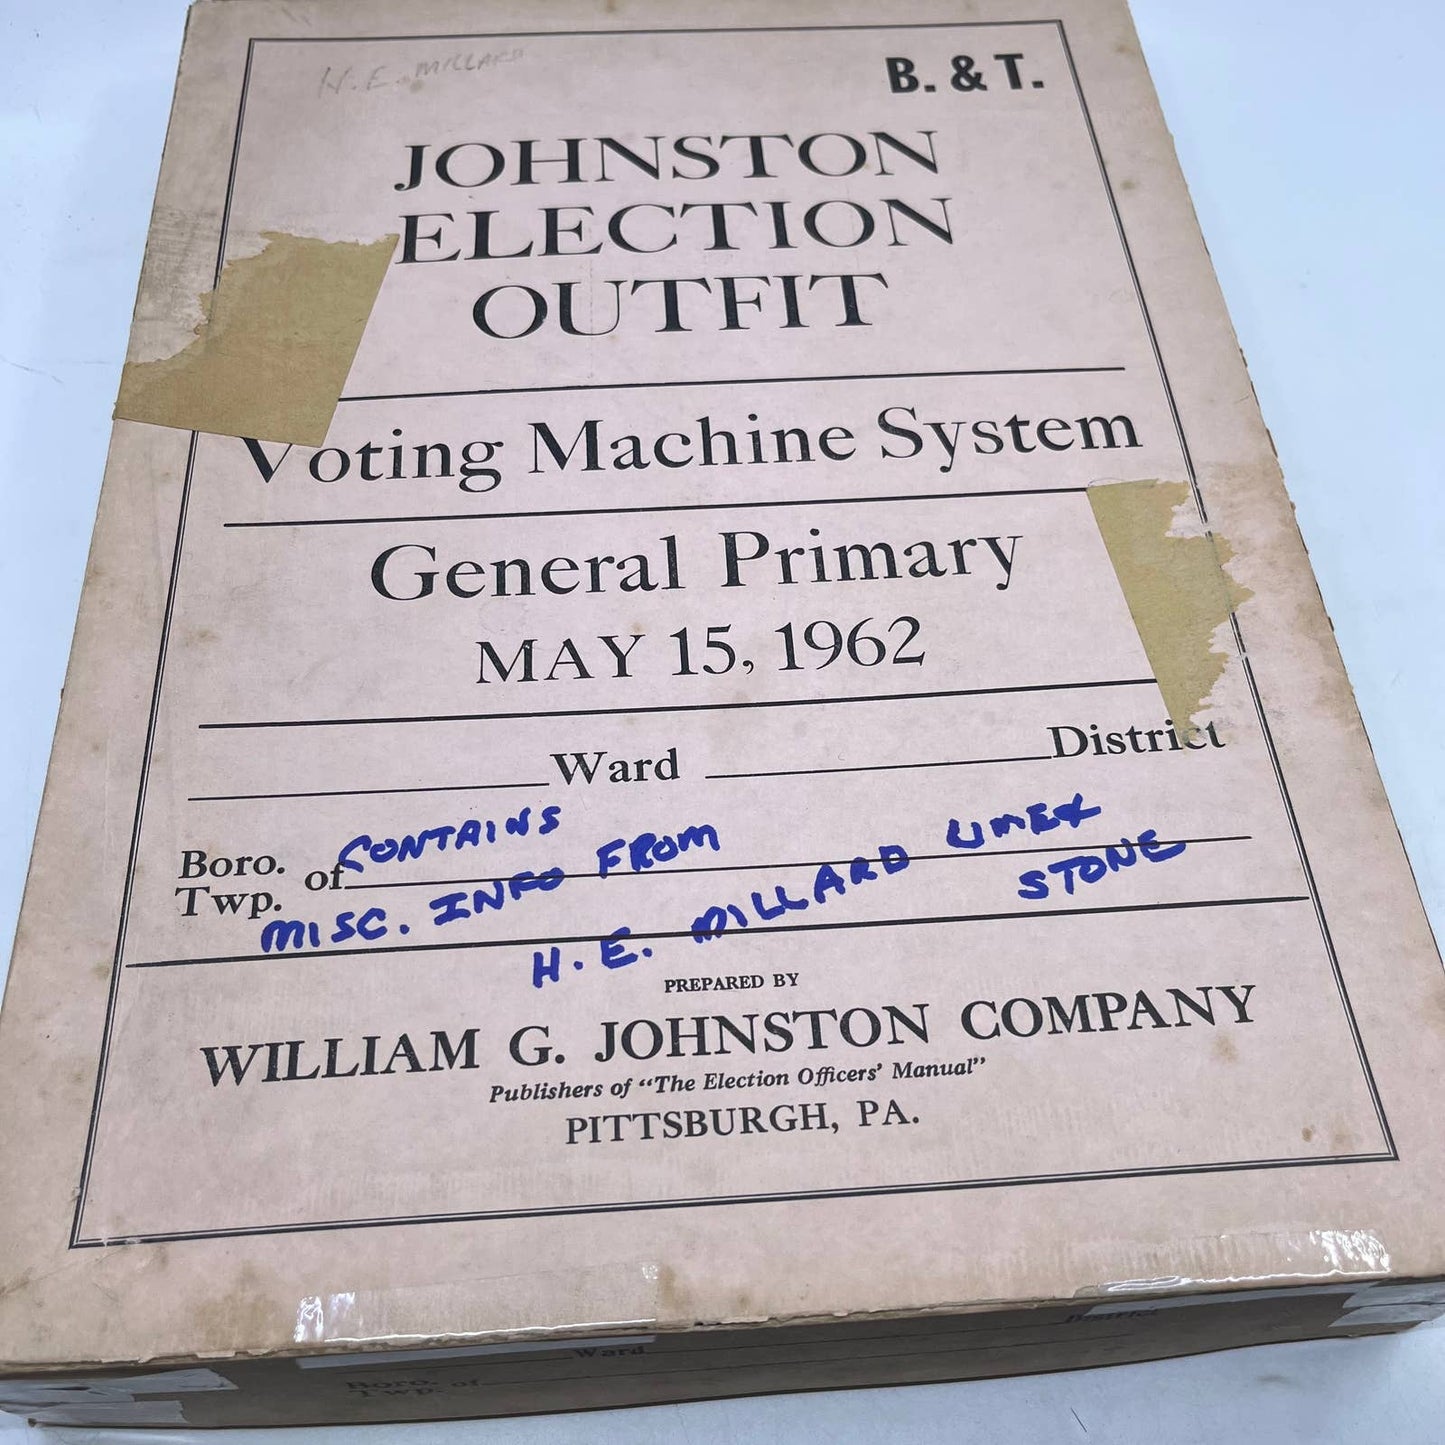 H. E. MILLARD
B. & T.
JOHNSTON
ELECTION
OUTFIT
Voting Machine System
General Primary
MAY 15, 1962
Ward District
Boro.
Twp. of
CONTAINS
MISC. INFO FROM
H. E. MILLARD LIME &
STONE
PREPARED BY
WILLIAM G. JOHNSTON COMPANY
Publishers of “The Election Officers' Manual”
PITTSBURGH, PA.
Ward District
Boro.
Twp. of